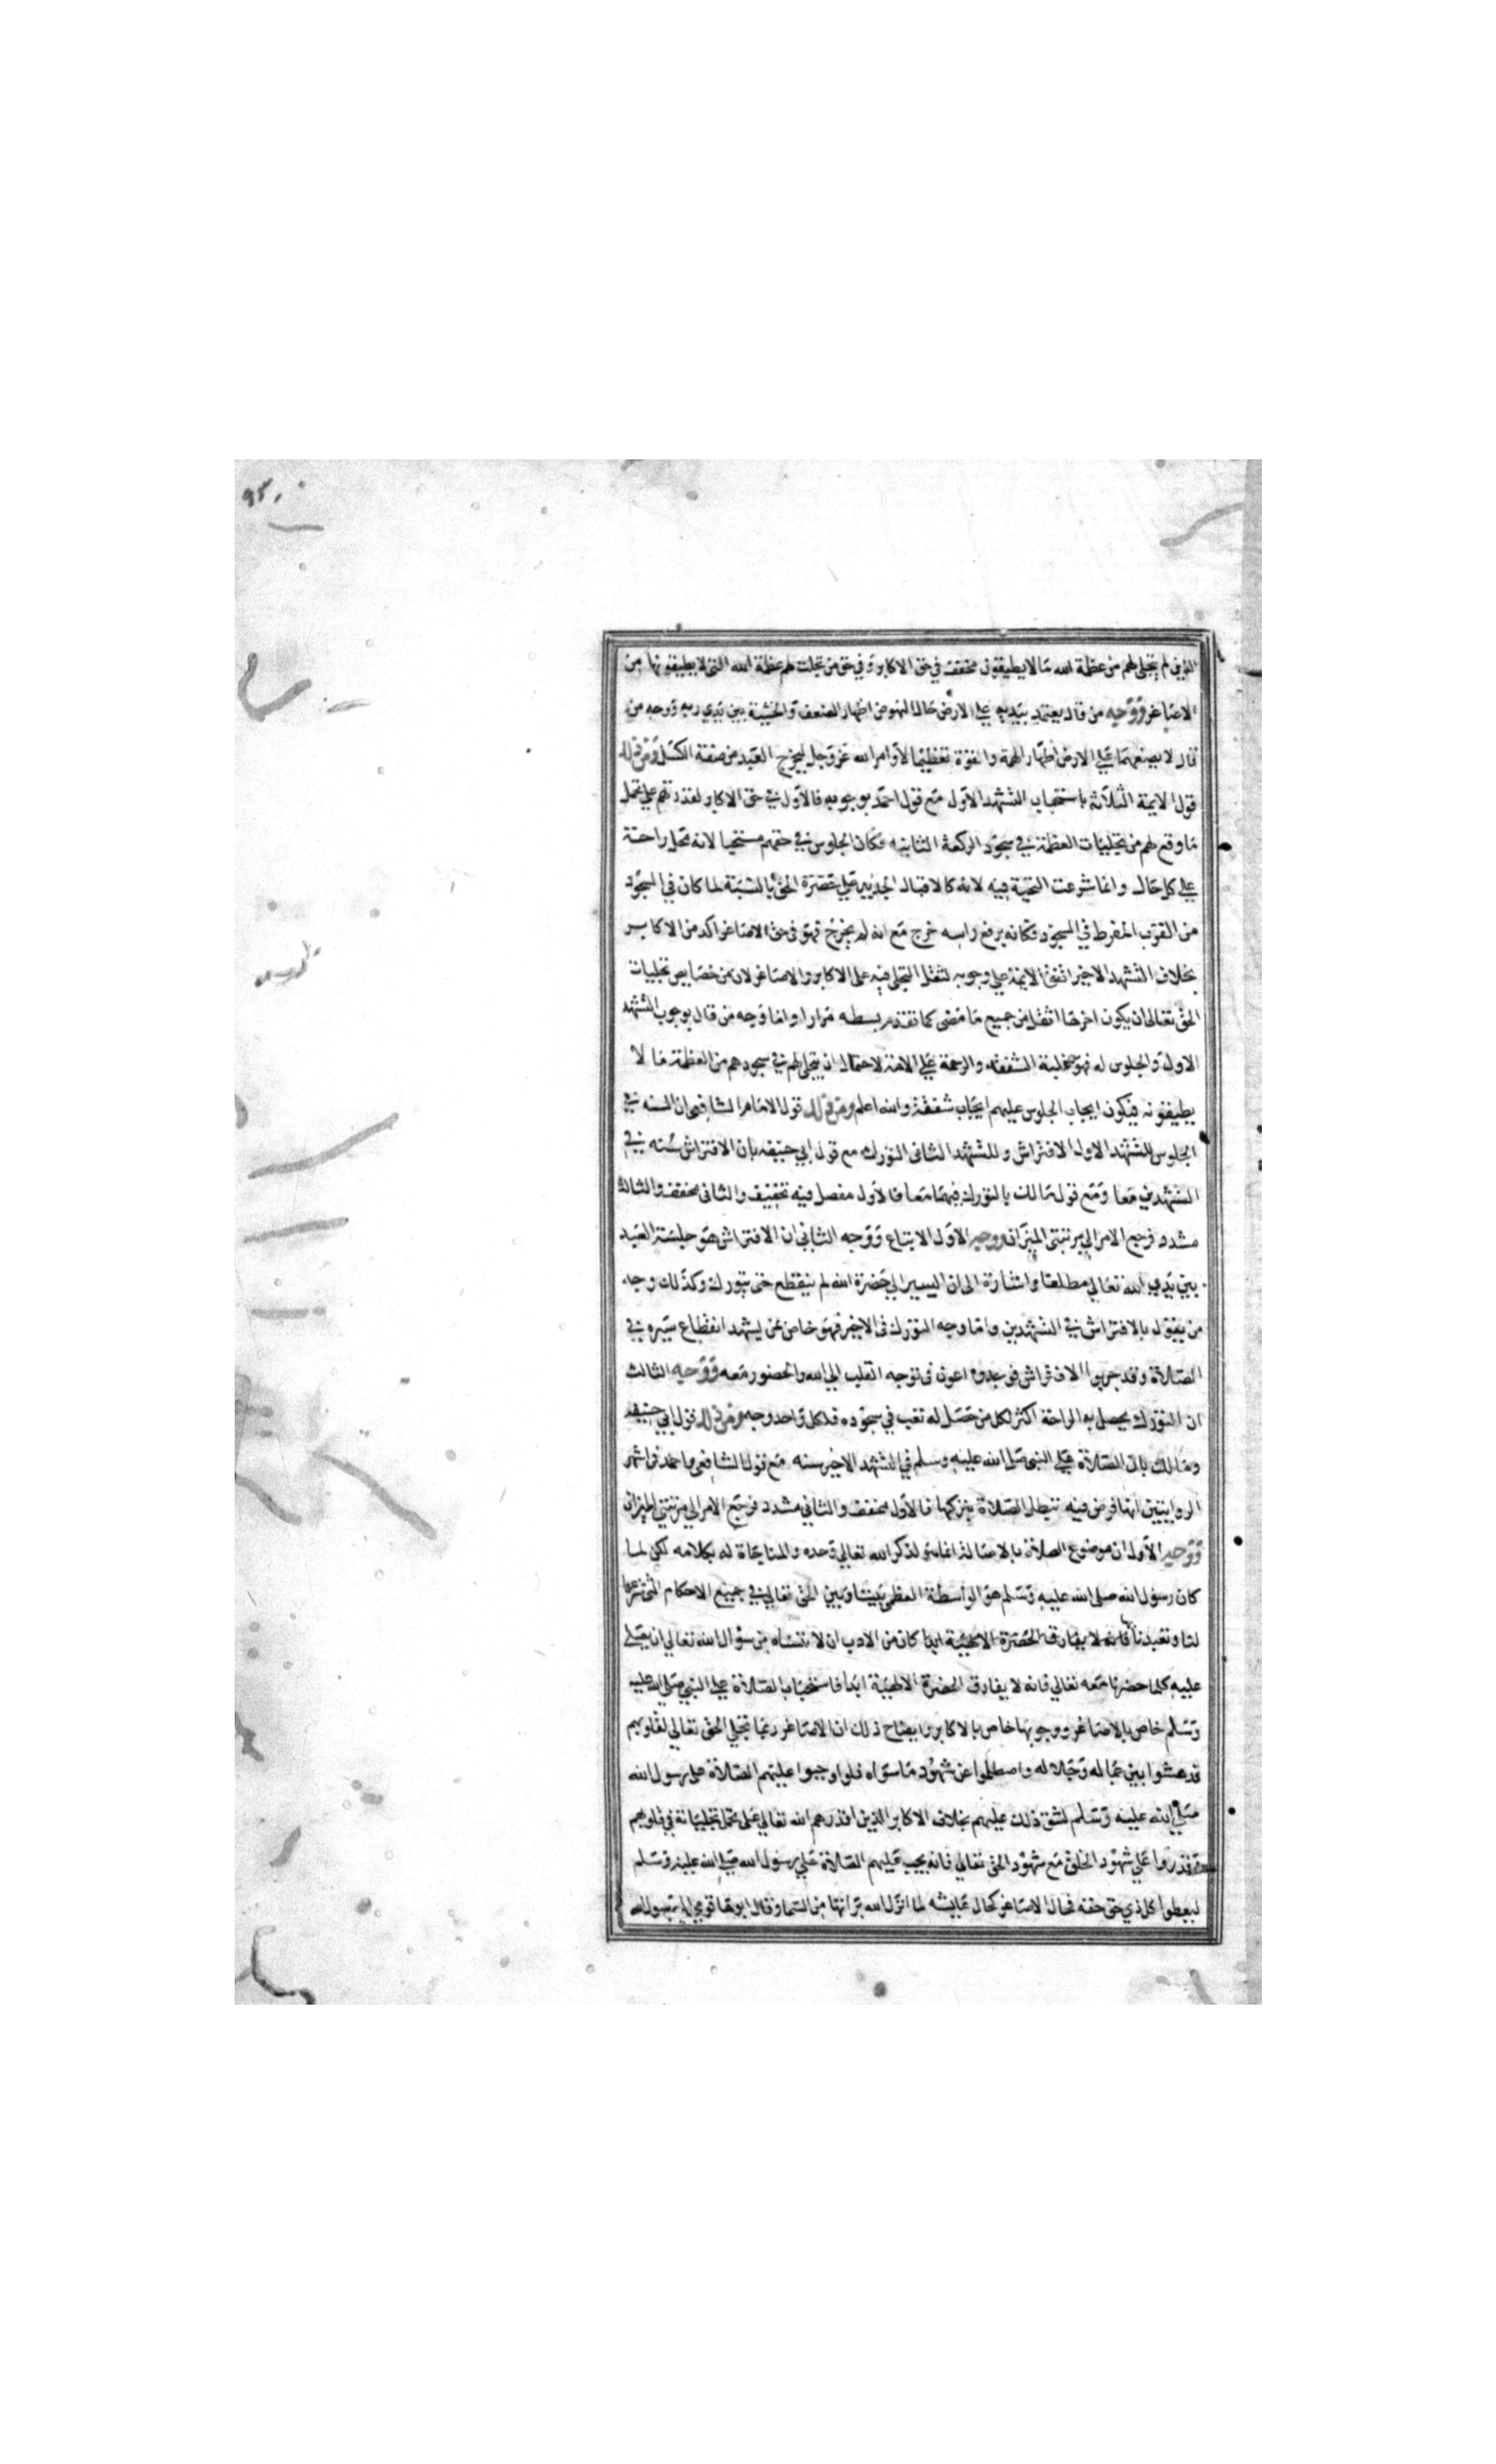 ٩٣
الذين لم يتجلى لهم من عظمة الله مالا يطيقون مخفف في حق الاكابر وفي حق من تجلت لهم عظمة الله التي لا يطيقونها من
الاصاغر ووجه من قال يعتمد بيديه على الارض حال النهوض اظهار الضعف والخشية بين يدي ربه ووجه من
قال لا يضعهما على الارض اظهار الهمة والقوة تعظيما لاوامر الله عز وجل ليخرج العبد من صفة الكسل ومن ذلك
قول الايمة الثلاثة باستحباب التشهد الاول مع قول احمد بوجوبه فالاول في حق الاكابر لقدرتهم على تحمل
ما وقع لهم من تجليات العظمة في سجود الركعة الثانية فكان الجلوس في حقهم مستحبا لانه محل راحة
على كل حال وانما شرعت التحية فيه لانه كالاقبال الجديد على حضرة الحق بالنسبة لما كان في السجود
من القرب المفرط في السجود فكانه برفع راسه خرج مع انه لم يخرج فهو في حق الاصاغر اكد من الاكابر
بخلاف التشهد الاخير اتفق الايمة على وجوبه لثقل التجلي فيه على الاكابر والاصاغر لان من خصايص تجليات
الحق تعالى ان يكون اخرها اثقل من جميع ما مضى كما تقدم بسطه مرارا واما وجه من قال بوجوب التشهد
الاول والجلوس له فهو غلبة الشفقة والرحمة على الامة لاحتمال ان يتجلى لهم في سجودهم من العظمة ما لا
يطيقونه فيكون ايجاب الجلوس عليهم ايجاب شفقة والله اعلم ومن ذلك قول الامام الشافعي ان السنه في
الجلوس للتشهد الاول الافتراش وللتشهد الثاني التورك مع قول ابي حنيفه بان الافتراش سنه في
التشهدين معا ومع قول مالك بالتورك فيهما معا فالاول مفصل فيه تخفيف والثاني مخفف والثالث
مشدد فرجع الامر الى مرتبتي الميزان ووجه الاول الاتباع ووجه الثاني ان الافتراش هو جلسة العبد
بين يدي الله تعالى مطلقا واشارة الى ان السير الى حضرة الله لم ينقطع حتى يتورك وكذلك وجه
من يقول بالافتراش في التشهدين واما وجه التورك في الاخير فهو خاص بمن يشهد انقطاع سيره في
الصلاة وقد جربوا الافتراش فوجدوه اعون في توجه القلب الى الله والحضور معه ووجه الثالث
ان التورك يحصل به الراحة اكثر لكل من حصل له تعب في سجوده فلكل واحد وجه ومن ذلك قول ابي حنيفه
ومالك بان الصلاة على النبي صلى الله عليه وسلم في التشهد الاخير سنه مع قول الشافعي واحمد في اشهر
الروايتين انها فرض فيه تبطل الصلاة بتركها فالاول مخفف والثاني مشدد فرجع الامر الى مرتبتي الميزان
ووجه الاول ان موضوع الصلاة بالاصالة انما هو لذكر الله تعالى وحده والمناجاة له بكلامه لكن لما
كان رسول الله صلى الله عليه وسلم هو الواسطة العظمى بيننا وبين الحق تعالى في جميع الاحكام التي شرعها
لنا وتعبدنا بها فانه لا يفارق الحضرة الالهية ابدا كان من الادب ان لا ننساه من سؤال الله تعالى ان يصلى
عليه كلما حضرنا معه تعالى فانه لا يفارق الحضرة الالهية ابدا فاستحباب الصلاة على النبي صلى الله عليه
وسلم خاص بالاصاغر ووجوبها خاص بالاكابر وايضاح ذلك ان الاصاغر ربما تجلى الحق تعالى لقلوبهم
فدهشوا بين جماله وجلاله واصطلموا عن شهود ما سواه فلو اوجبوا عليهم الصلاة على رسول الله
صلى الله عليه وسلم لشق ذلك عليهم بخلاف الاكابر الذين اقدرهم الله تعالى على تحمل تجلياته في قلوبهم
وقدروا على شهود الخلق مع شهود الحق تعالى فانه يجب عليهم الصلاة على رسول الله صلى الله عليه وسلم
ليعطوا كل ذي حق حقه فحال الاصاغر كحال عايشه لما انزل الله براتها من السما وقال ابوها قومي الى رسول الله